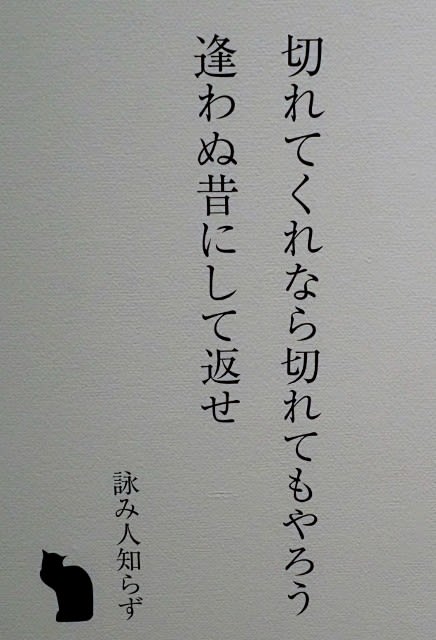 切れてくれなら切れてもやろう
逢わぬ昔にして返せ
詠み人知らず